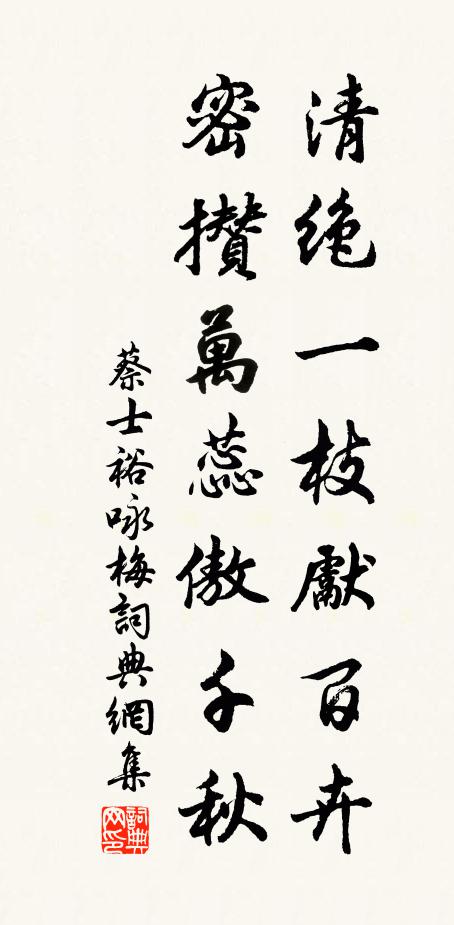 清絶一枝獻百卉
密攢萬蕊傲千秋
蔡士裕咏梅詞典網集
詞典网印